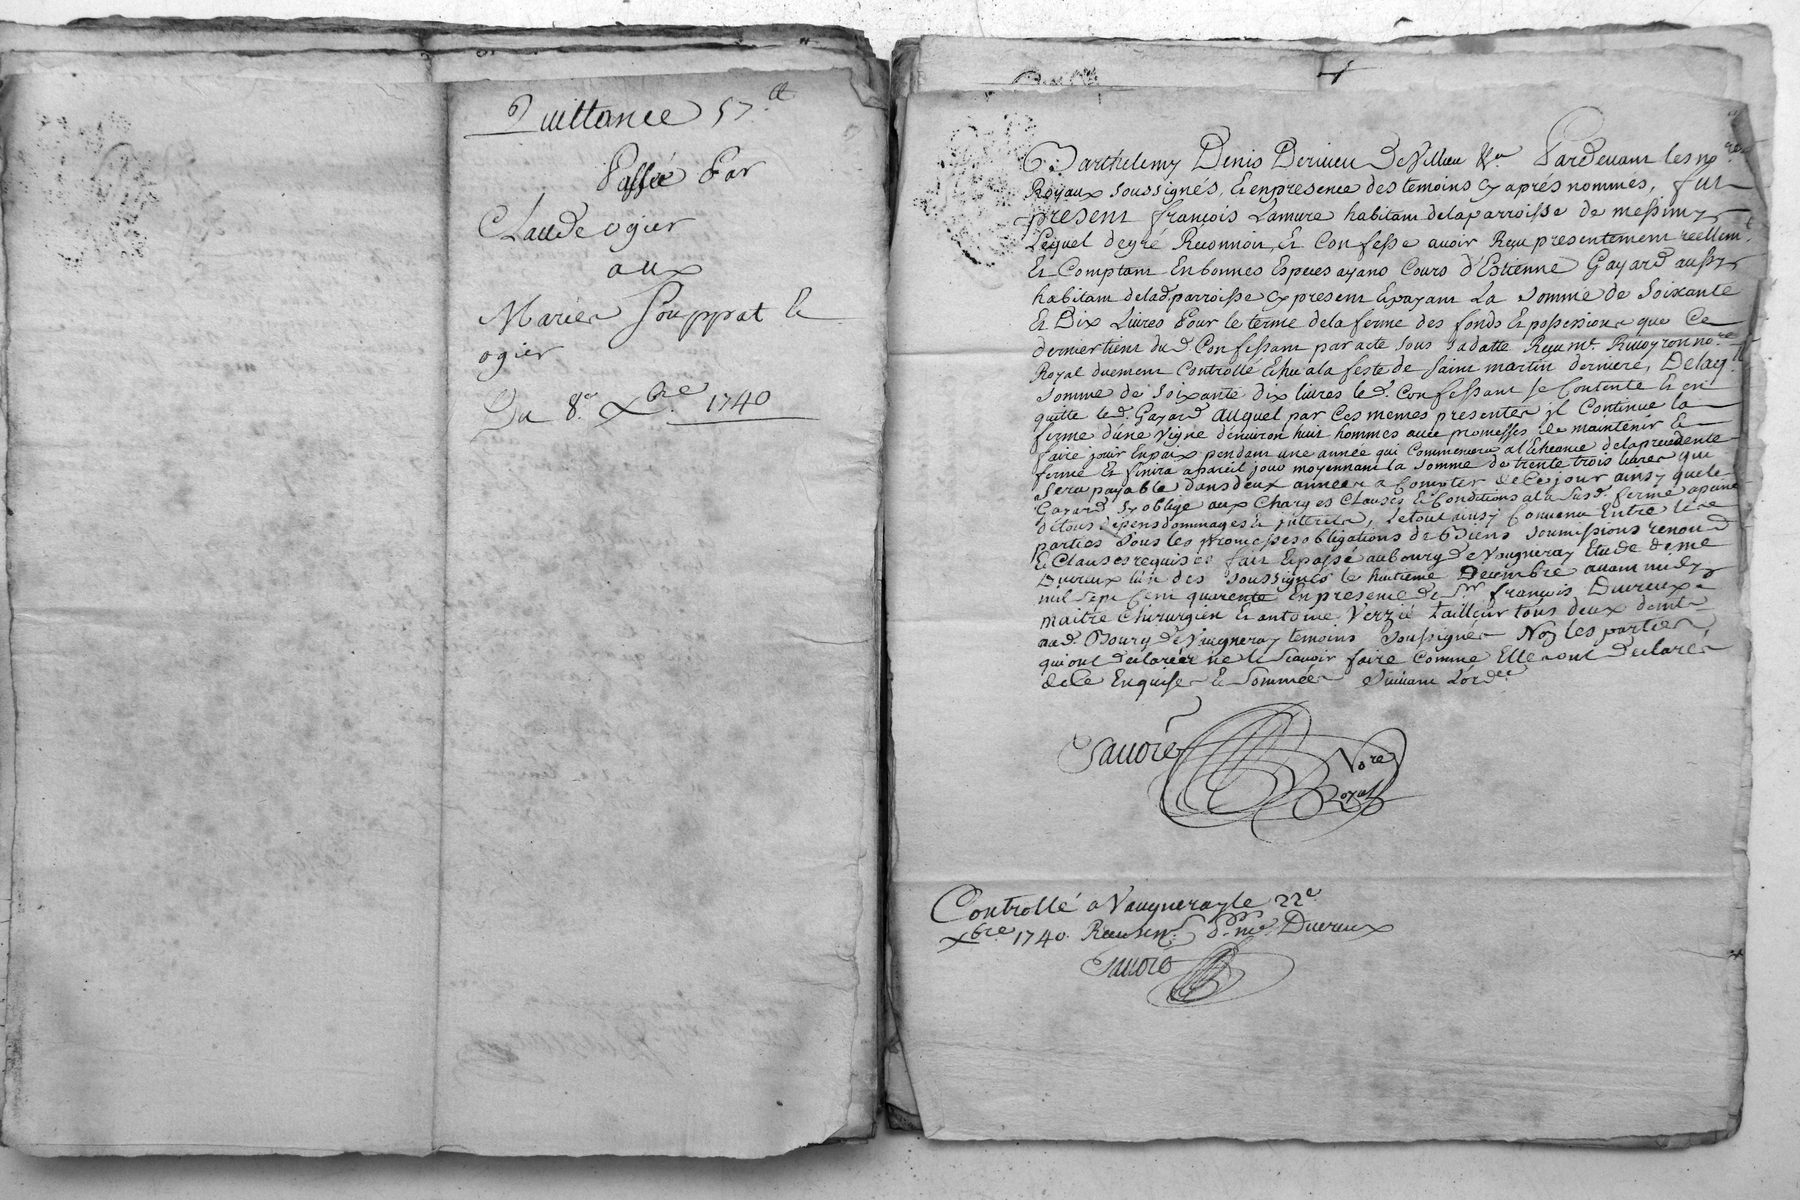 Quittance 57.tt
Passée Par
Claude ogier
aux
Mariés Souppat &
ogier
Du 8.e Xbre. 1740
Barthelemy Denis Derieu de Villeu &a Pardevant les no.res
Royaux soussignés, & en presence des temoins cy aprés nommés, fut
present françois Lamure habitant de la parroisse de messimy
Lequel de gré Reconnoit, Et Confesse avoir Reçu presentement reellemt.
Et Comptant En bonnes Especes ayans Cours d'Estienne Gayard aussy
habitant de lad. parroisse cy present & payant La somme de soixante
Et Dix Livres Pour le terme de la ferme des fonds Et possessions que Ce
dernier tient dud. Confessant par acte sous sa datte Reçu me. no.re
Royal duement Controllé Echu a la feste de saint martin derniere, De laq.lle
somme de soixante dix livres le d. Confessant se Contente & en
quitte le d. Gayard auquel par Ces memes presentes il Continue la
ferme d'une vigne d'environ huit hommes avec promesses de maintenir &
faire jouir En paix pendant une année qui Commencera a l'Echeance de la precedente
ferme Et finira a pareil jour moyennant la somme de trente trois livres qui
sera payable dans deux années a Compter de Ce jour ainsy que le
Gayard s'y oblige aux Charges Clauses & Conditions a la susd. ferme a peine
de tous depens dommages & interets, Le tout ainsy Convenu Entre les
parties sous les promesses obligations de Biens soumissions renon.ons
& Clauses requises fait & passé au bourg de Vaugneray Etude de me
Duvreux l'un des soussignés le huitieme Decembre avant midy
mil sept Cent quarente En presence de Sr. françois Duvreux
maitre Chirurgien Et antoine Verzié tailleur tous deux demts.
aud. Bourg de Vaugneray temoins soussignés Non les parties
qui ont declarées ne le scavoir faire Comme Elles ont declarés
de Ce Enquises & sommées suivant L'ord.ce
Savoie No.re
Royal
Controllé a Vaugneray le 22e
Xbre. 1740. Duvreux
Savoie